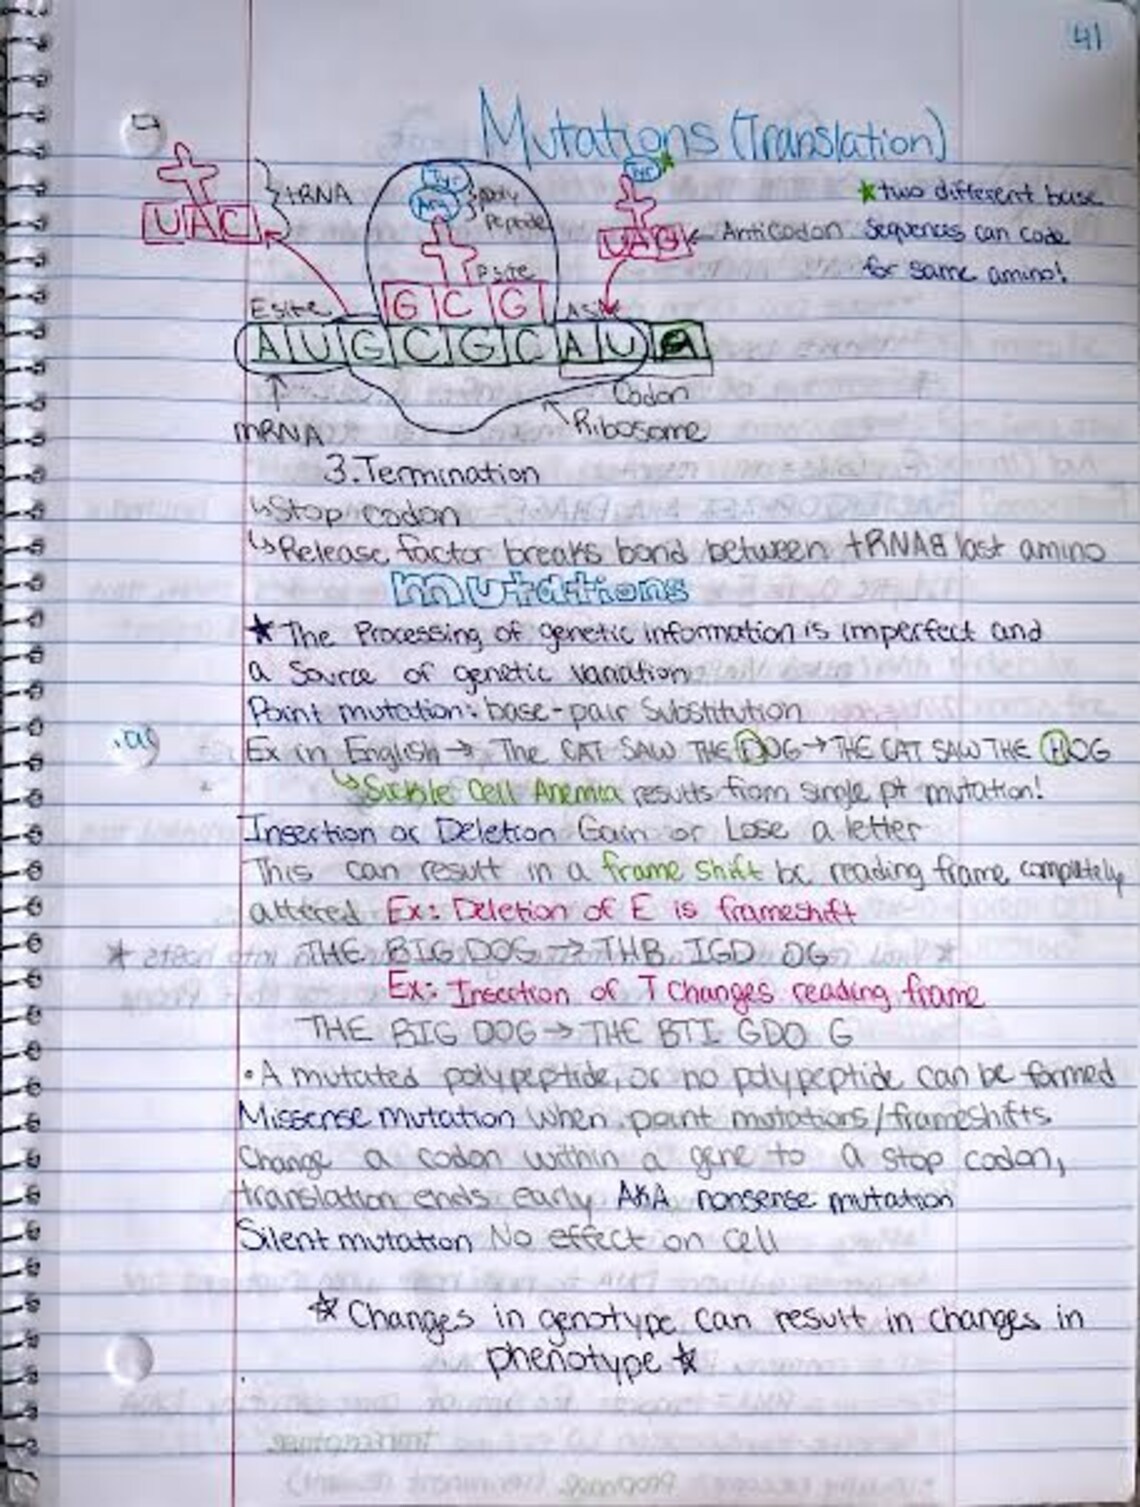 41
Mutations (Translation)
tRNA
UAC
Tyr
Arg
Poly
Peptide
P site
GCG
Tyr
UAG
Anticodon
★two different base
sequences can code
for same amino!
E site
A Site
AUGCGCAU
Codon
mRNA
Ribosome
3. Termination
↳Stop codon
↳Release factor breaks bond between tRNA & last amino
mutations
★ The Processing of genetic information is imperfect and
a Source of genetic variation
Point mutation: base-pair Substitution
Ex in English → The CAT SAW THE DOG → THE CAT SAW THE HOG
↳Sickle Cell Anemia results from single pt mutation!
Insertion or Deletion Gain or Lose a letter
This can result in a frame shift bc reading frame completely
altered Ex: Deletion of E is frameshift
THE BIG DOG → THB IGD OG
Ex: Insertion of T Changes reading frame
THE BIG DOG → THE BTI GDO G
• A mutated polypeptide, or no polypeptide can be formed
Missense mutation when point mutations/frameshifts
Change a codon within a gene to a stop codon,
translation ends early AKA nonsense mutation
Silent mutation No effect on cell
☆ Changes in genotype can result in changes in
phenotype ☆